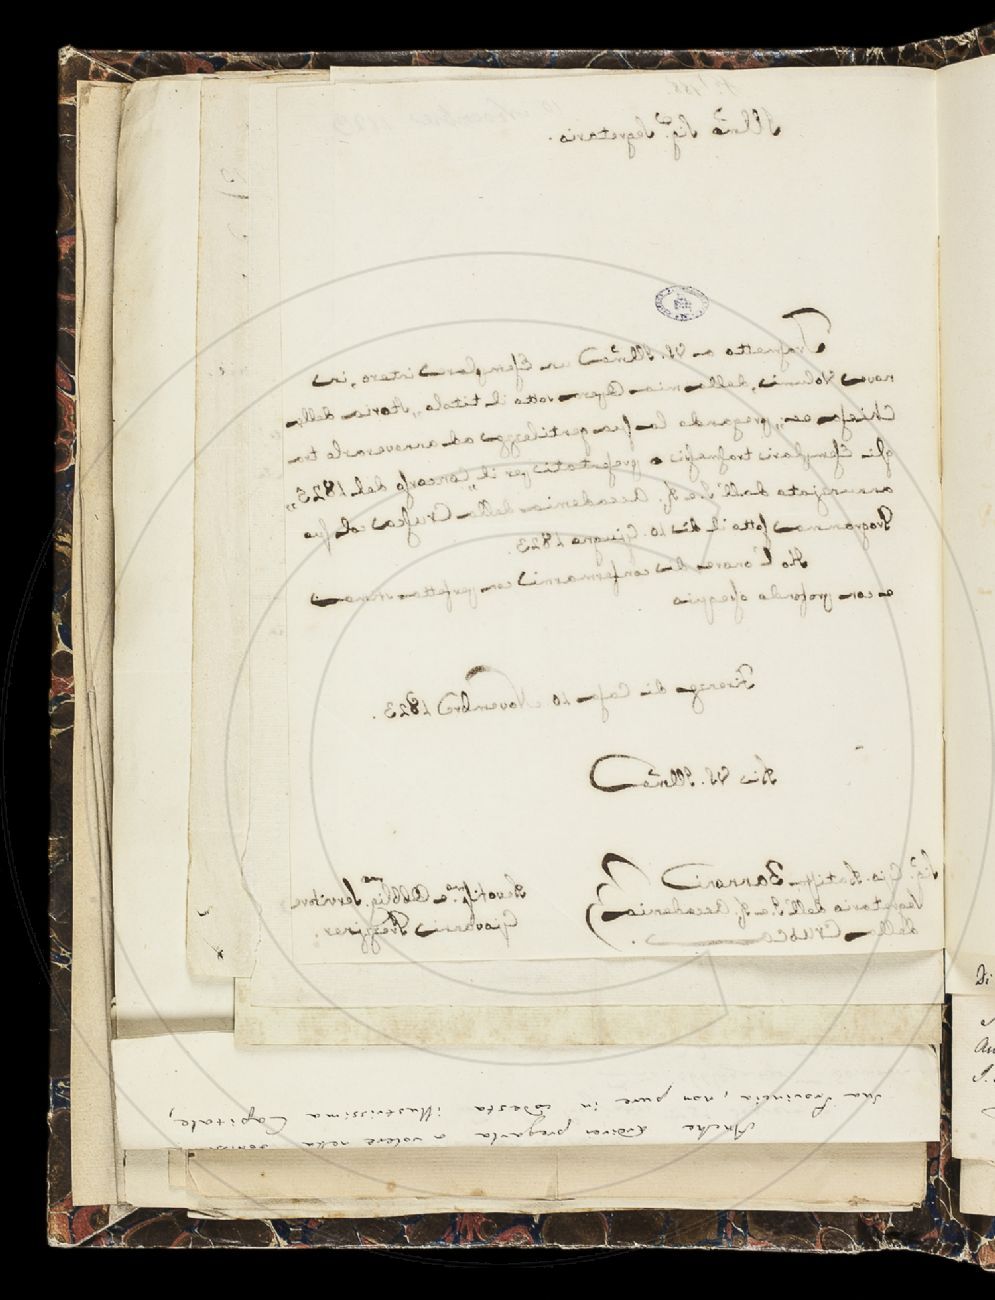 Illmo Sig.r Segretario.
Trasmetto a VS. Illma un Esemplare intero, in
nove Volumi, della mia Opera sotto il titolo „ Storia della
Chiesa ec„, pregando la sua gentilezza ad annoverarlo tra
gli Esemplari trasmessi e presentati per il „Concorso del 1825„
annunziato dall' I. e R. Accademia della Crusca col suo
Programma sotto il dì 10. Giugno 1823.
Ho l'onore di confermarmi con perfetta stima
e con profondo ossequio
Firenze di Casa 10 Novembre 1823.
Di VS. Illma
Sig.r Gio. Batista Zannoni
Segretario dell' I. e R. Accademia
della Crusca
Devotiss.mo e Obblig.mo Servitore
Giovanni
sua Provincia, non pure in codesta illustrissima Capitale,
Anche ardirei pregarla a volere nella